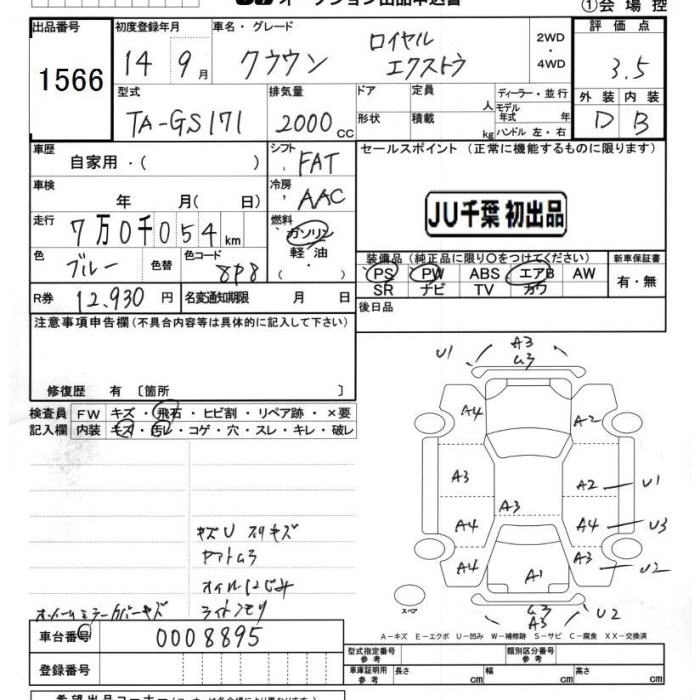 ①会場控
出品番号
1566
初度登録年月
14 9月
車名・グレード
クラウン ロイヤル エクストラ
2WD
・
4WD
評価点
3.5
型式
TA-GS171
排気量
2000 CC
ドア
形状
定員 人
積載 kg
ディーラー・並行
モデル年式 年
ハンドル 左・右
外装 内装
D B
車歴
自家用・( )
シフト
FAT
車検
年 月( 日)
冷房
AAC
走行
7万0千054km
燃料
ガソリン
軽油
色
ブルー
色替
色コード
8P8
R券 12,930円
名変通知期限 月 日
セールスポイント (正常に機能するものに限ります)
JU千葉 初出品
装備品 (純正品に限り○をつけてください)
PS PW ABS エアB AW
SR ナビ TV カワ
新車保証書
有・無
後日品
注意事項申告欄(不具合内容等は具体的に記入して下さい)
修復歴 有 〔箇所 〕
検査員 FW キズ・飛石・ヒビ割・リペア跡・×要
記入欄 内装 キズ・汚レ・コゲ・穴・スレ・キレ・破レ
キズU スリキズ
ヤアトムラ
オイルにじみ
ライトクモリ
U1 A3
ム3
A4 A2
A3 A2 U1
A3
A4 A4 U3
A4 A1 A3 U2
ム3
A3 U2
スペア
A-キズ E-エクボ U-凹み W-補修跡 S-サビ C-腐食 XX-交換済
車台番号 0008895
登録番号
型式指定番号 参考
類別区分番号 参考
車庫証明用 参考 長さ cm 幅 cm 高さ cm